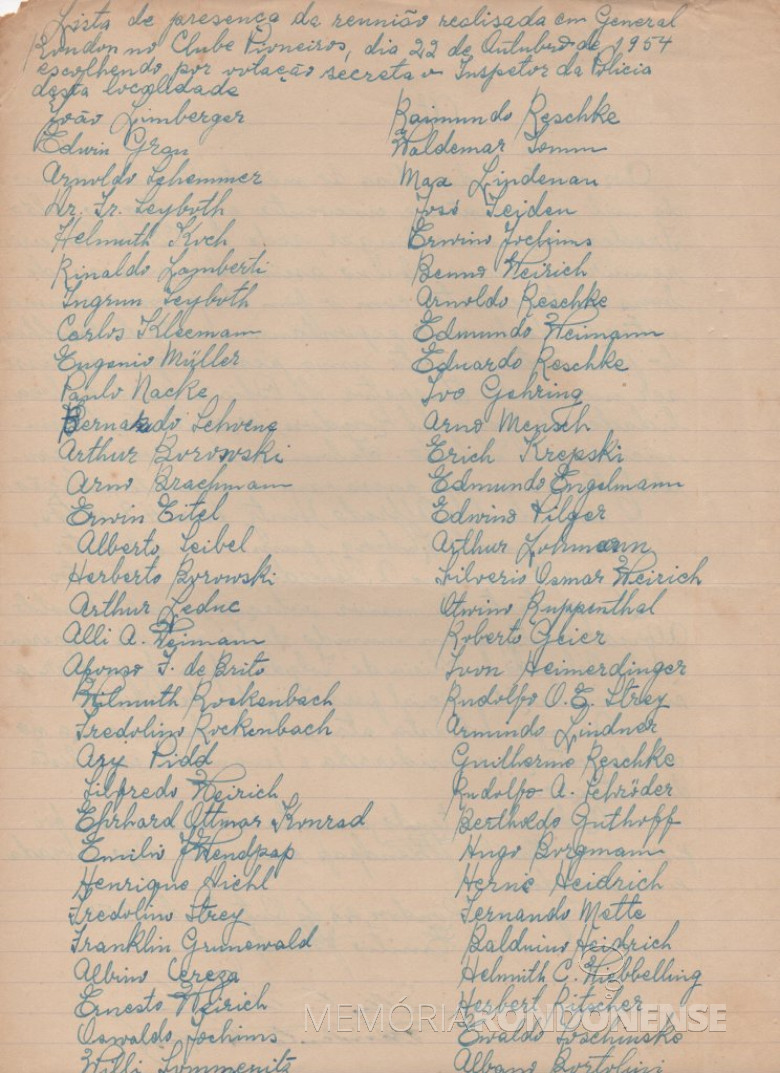 Lista de presença da reunião realisada em General
Rondon no Clube Pioneiros, dia 22 de Outubro de 1954
escolhendo por votação secreta o Inspetor da Policia
desta localidade
João Limberger
Edwin Grau
Arnoldo Schemmer
Dr. Fr. Seyboth
Helmuth Koch
Rinaldo Lamberti
Ingrun Seyboth
Carlos Kleemann
Eugenio Müller
Paulo Nacke
Bernardo Schvene
Arthur Borowski
Arno Brachmann
Erwin Eitel
Alberto Seibel
Herberto Borowski
Arthur Leduc
Alli A. Weimann
Afonso J. de Brito
Wilmuth Rockenbach
Fredolino Rockenbach
Ary Pidd
Silfredo Weirich
Ehrhard Ottmar Konrad
Emilio J Wendpap
Henrique Hiehl
Fredolino Strey
Franklin Grunewald
Albino Cereza
Ernesto Weirich
Oswaldo Jochims
Willi Lommenitz
Raimundo Reschke
Waldemar Somm
Max Lindenau
José Seiden
Erwino Jochims
Benno Weirich
Arnoldo Reschke
Edmundo Weimann
Eduardo Reschke
Ivo Gehring
Arno Mensch
Erich Krepski
Edmundo Engelmann
Edwino Pilger
Arthur Lohmann
Silverio Osmar Weirich
Otwino Ruppenthal
Roberto Geier
Ivon Heimerdinger
Rudolfo O. E. Strey
Armindo Lindner
Guilherme Reschke
Rudolfo A. Schröder
Bertholdo Guthoff
Hugo Borgmann
Herné Heidrich
Fernando Matte
Balduino Heidrich
Helmuth C. Wiebbelling
Herbert Ritscher
Ewaldo Joschinske
Albano Bortolini
MEMÓRIA RONDONENSE